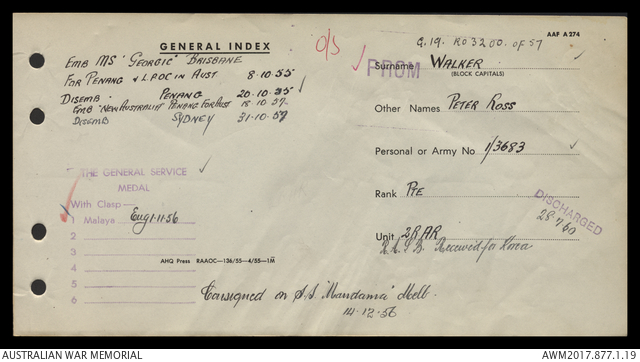 AAF A 274
GENERAL INDEX
O/S
G.19. RO 3200. OF 57
EMB MS "GEORGIC" BRISBANE
FOR PENANG & LROC IN AUST 8.10.55
DISEMB. PENANG 20.10.55
EMB "NEW AUSTRALIA" PENANG FOR AUST 18.10.57
DISEMB SYDNEY 31.10.57
FROM
Surname WALKER
(BLOCK CAPITALS)
Other Names PETER ROSS
Personal or Army No 1/3683
Rank PTE
DISCHARGED
28 7 60
Unit 2RAR
Received for Korea
THE GENERAL SERVICE
MEDAL
With Clasp
1 Malaya Eug1.11.56
2
3
4
5
6
AHQ Press RAAOC—136/55—4/55—1M
Consigned on S/S "Mandama" Melb.
14.12.56
AUSTRALIAN WAR MEMORIAL
AWM2017.877.1.19